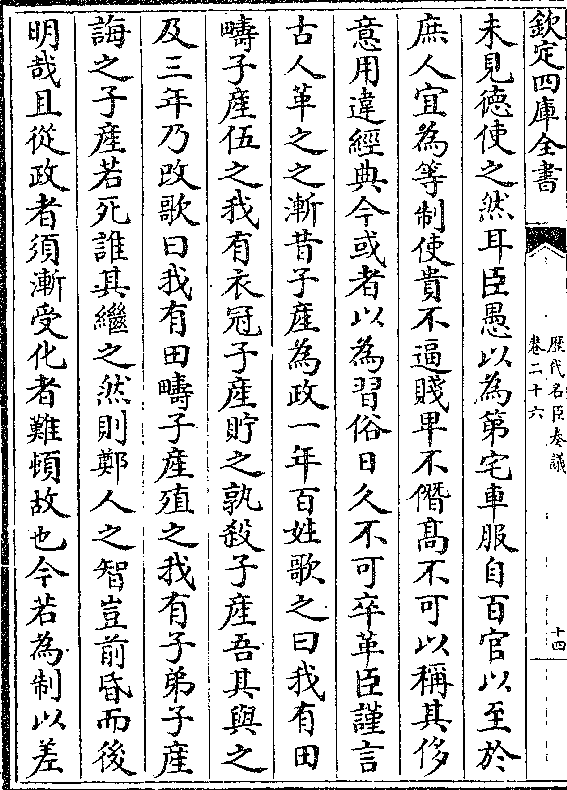 欽定四庫全書
歷代名臣奏議
卷二十六
十四
未見德使之然耳臣愚以為第宅車服自百官以至於
庶人宜為等制使貴不逼賤卑不僭髙不可以稱其侈
意用違經典今或者以為習俗日久不可卒革臣謹言
古人革之之漸昔子産為政一年百姓歌之曰我有田
疇子産伍之我有衣冠子産貯之孰殺子産吾其與之
及三年乃改歌曰我有田疇子産殖之我有子弟子産
誨之子産若死誰其繼之然則鄭人之智豈前昏而後
明哉且從政者須漸受化者難頓故也今若為制以差